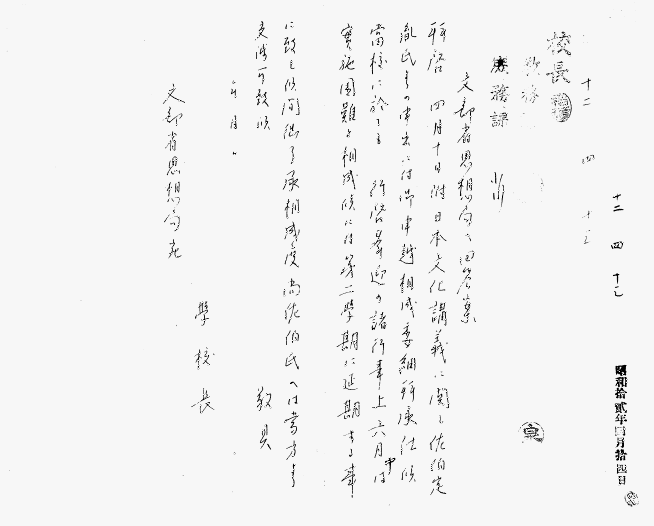 昭和拾貳年四月拾四日
十二 四 十二
十二 四 十二
校長
教務
庶務課
文部省思想局へ回答案
拝啓 四月十日附日本文化講義ニ関シ佐伯定
胤氏ヨリ申出ニ付御申越相成委細拝承仕候
當校ニ於テモ 行啓奉迎ノ諸行事上六月中ハ
實施困難ト相成候ニ付第二學期ニ延期スル事
ニ致シ候間御了承相成度 尚佐伯氏ヘハ當方ヨリ
交渉可致候 敬具
年 月 、
學校長
文部省思想局宛